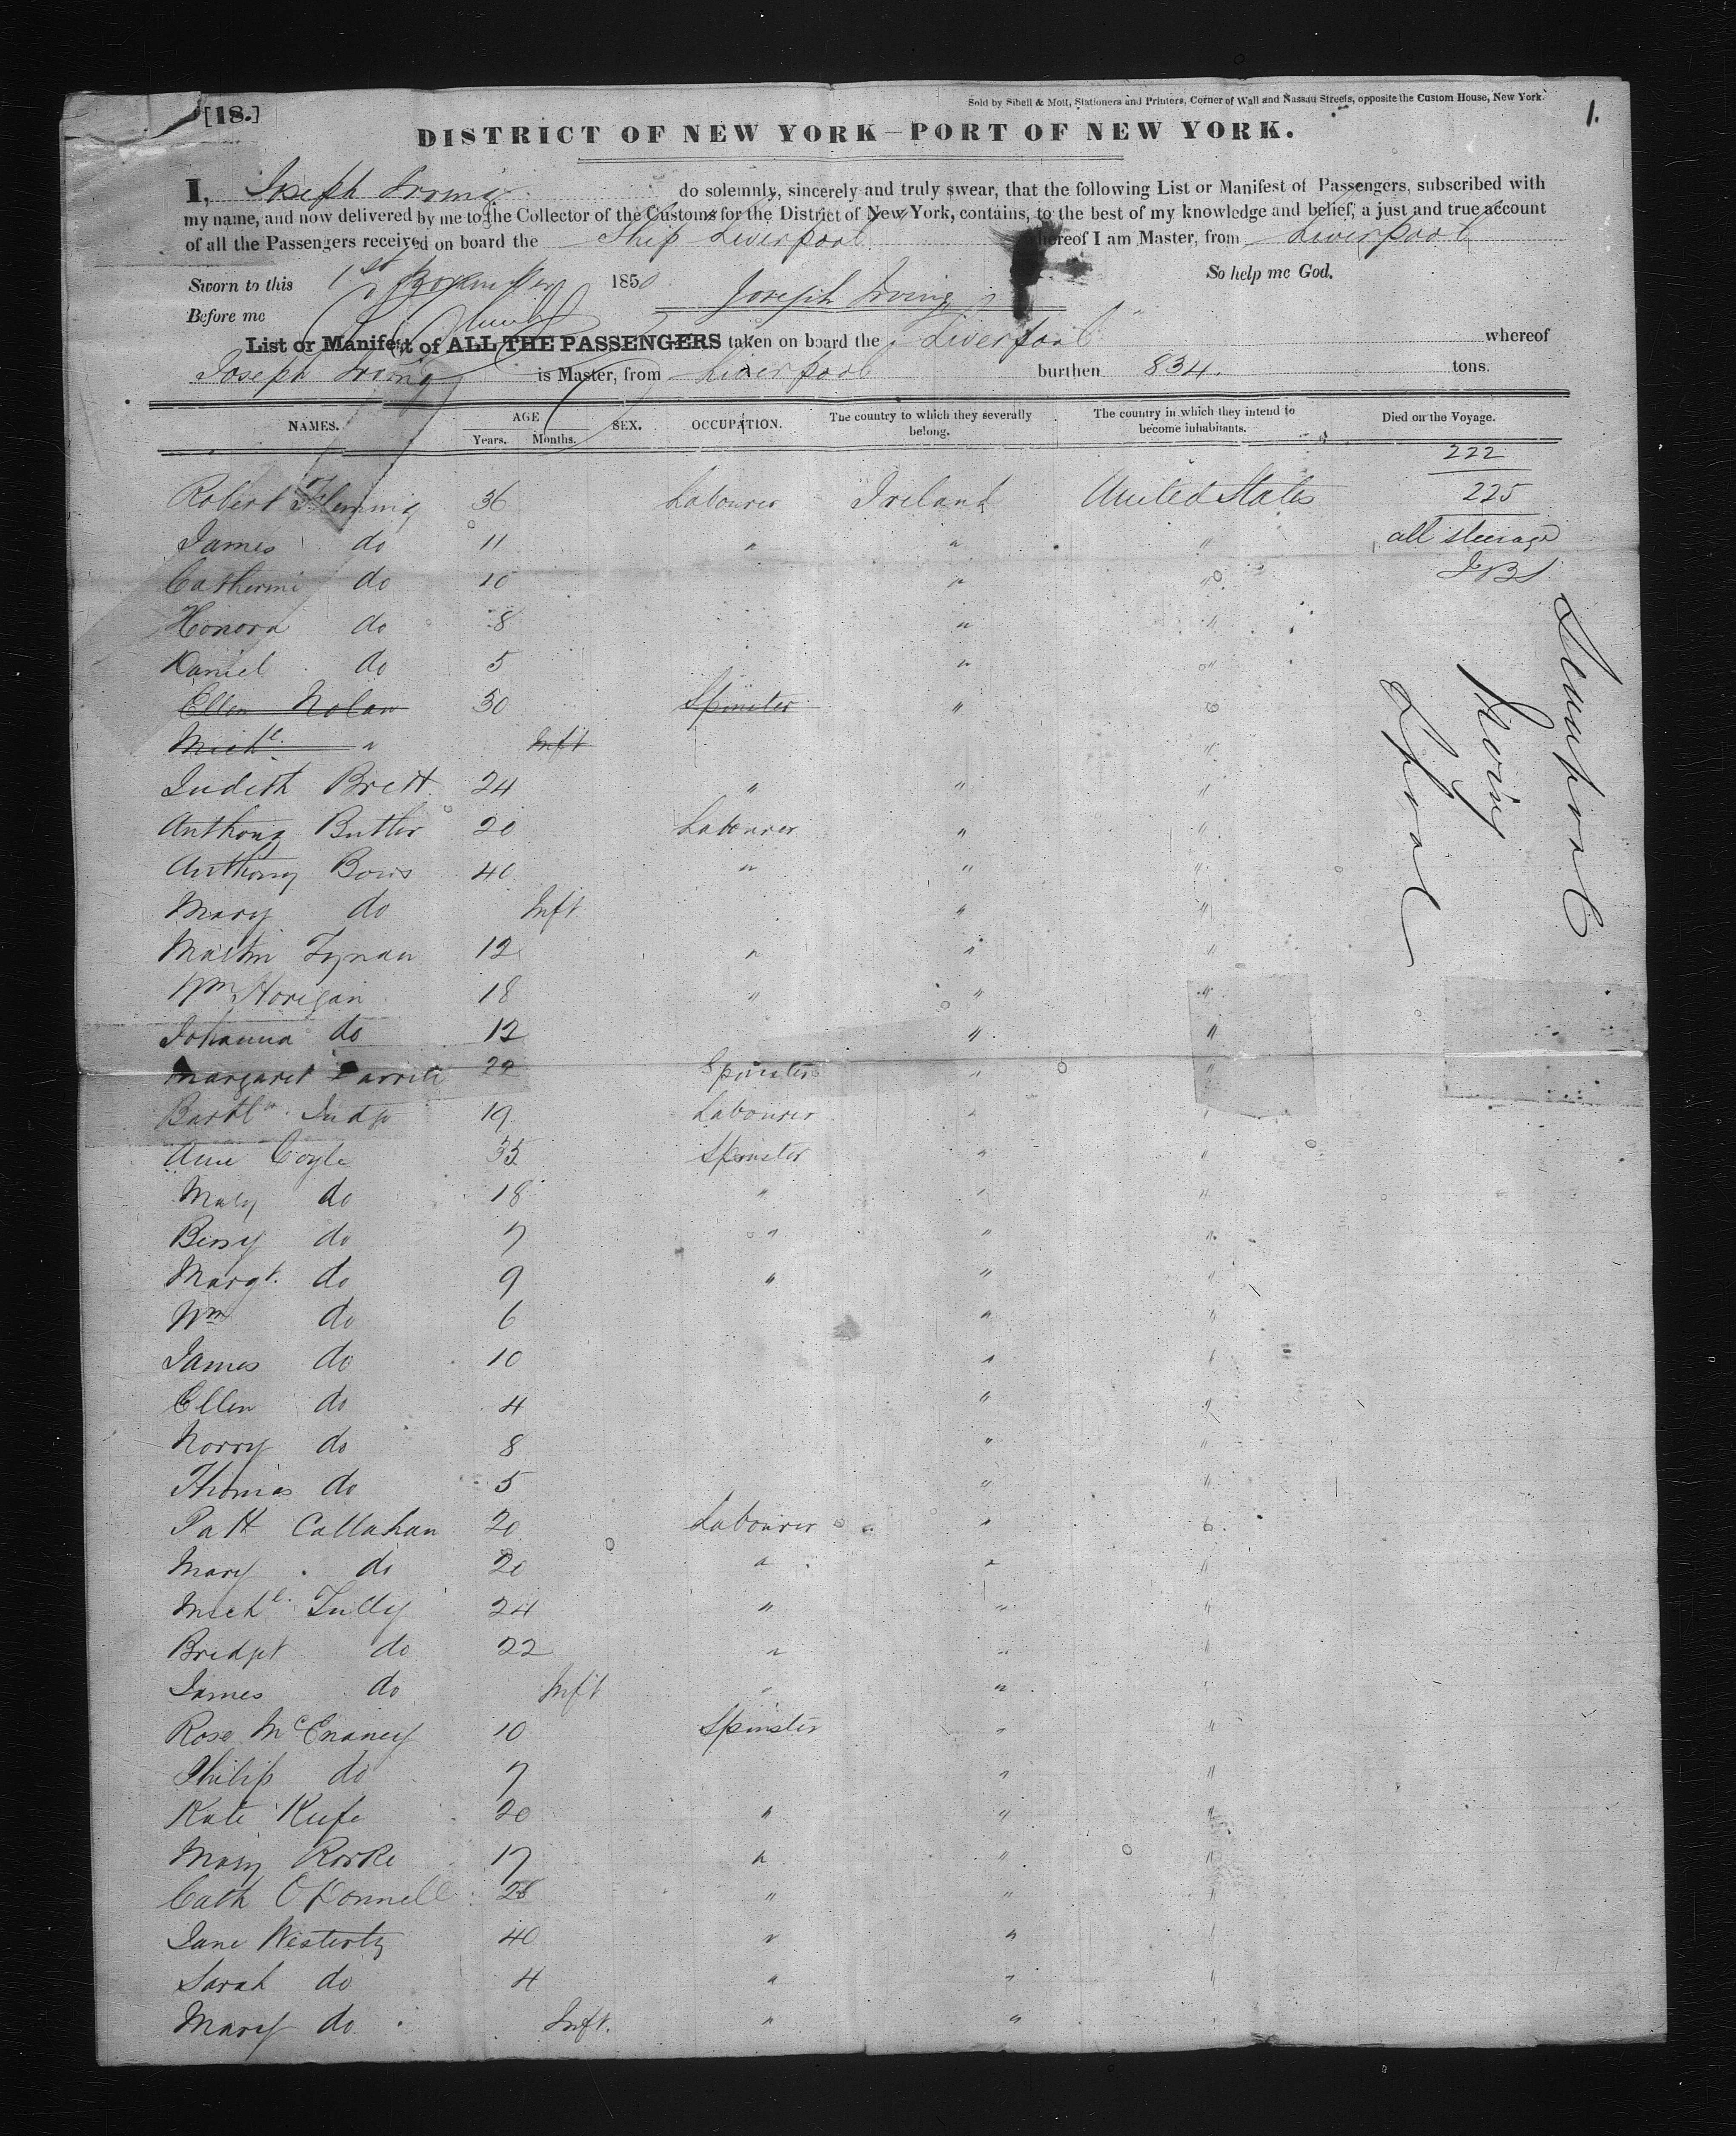 [18.]
Sold by Sibell & Mott, Stationers and Printers, Corner of Wall and Nassau Streets, opposite the Custom House, New York.
1.
DISTRICT OF NEW YORK—PORT OF NEW YORK.
I, Joseph Irving do solemnly, sincerely and truly swear, that the following List or Manifest of Passengers, subscribed with
my name, and now delivered by me to the Collector of the Customs for the District of New York, contains, to the best of my knowledge and belief, a just and true account
of all the Passengers received on board the Ship Liverpool whereof I am Master, from Liverpool
Sworn to this 1st November 1850 So help me God.
Before me Joseph Irving
List or Manifest of ALL THE PASSENGERS taken on board the "Liverpool" whereof
Joseph Irving is Master, from Liverpool burthen 834. tons.
NAMES. AGE Years. Months. SEX. OCCUPATION. The country to which they severally belong. The country in which they intend to become inhabitants. Died on the Voyage.
222
Robert Fleming 36 Labourer Ireland United States 225
James do 11 " " " all steerage
Catherine do 10 " "
Honora do 8 " "
Daniel do 5 " "
Ellen Nolan 30 Spinster "
Michl. " Inft "
Judith Brett 24 " " "
Anthony Butler 20 Labourer " "
Anthony Bows 40 " " "
Mary do Inft " "
Martin Tynan 12 " " "
Wm Horigan 18 " " "
Johanna do 12 " "
Margaret 22 Spinster " "
Bartlw. Judge 19 Labourer " "
Ann Coyle 35 Spinster " "
Mary do 18 " " "
Bessy do 7 " " "
Margt. do 9 " " "
Wm do 6 " "
James do 10 " "
Ellen do 4 " "
Norry do 8 " "
Thomas do 5 " "
Patt Callahan 20 Labourer "
Mary do 20 " " "
Michl. Tully 24 " " "
Bridget do 22 " " "
James do Inft " " "
Rose McEnaney 10 Spinster " "
Philip do 7 " "
Kate Keefe 20 " " "
Mary Rorke 17 " " "
Cath O'Connell 28 " " "
Jane Westerty 40 " " "
Sarah do 4 " " "
Mary do Inft. " " "
Liverpool
Irving
Lpool